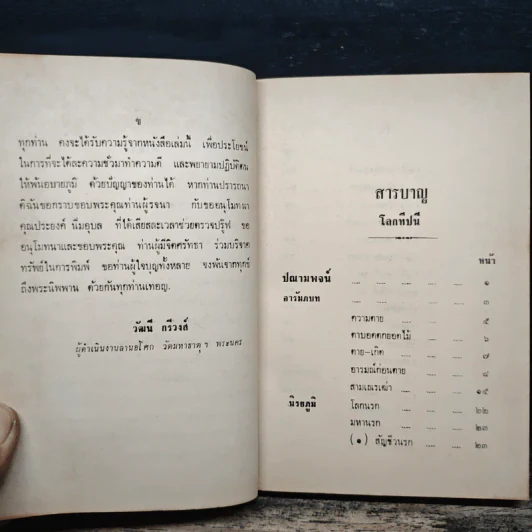 ข
ทุกท่าน คงจะได้รับความรู้จากหนังสือเล่มนี้ เพื่อประโยชน์
ในการที่จะได้ละความชั่วมาทำความดี และพยายามปฏิบัติตน
ให้พ้นอบายภูมิ ด้วยปัญญาของท่านได้ หากท่านปรารถนา
ดิฉันขอกราบขอบพระคุณท่านผู้รจนา กับขออนุโมทนา
คุณประองค์ นิ่มอุบล ที่ได้เสียสละเวลาช่วยตรวจปรู๊ฟ ขอ
อนุโมทนาและขอบพระคุณ ท่านผู้มีจิตศรัทธา ร่วมบริจาค
ทรัพย์ในการพิมพ์ ขอท่านผู้ใจบุญทั้งหลาย จงพ้นจากทุกข์
ถึงพระนิพพาน ด้วยกันทุกท่านเทอญ.
วัฒนี กรีวงส์
ผู้ดำเนินงานลานอโศก วัดมหาธาตุ ฯ พระนคร
สารบาญ
โลกทีปนี
หน้า
ปณามพจน์ .... .... .... .... ๑
อารัมภบท .... .... .... .... ๓
ความตาย .... .... .... ๕
ตาบอดตกยอดไม้ .... .... ๖
ตาย-เกิด .... .... .... ๗
อารมณ์ก่อนตาย .... .... ๘
สามเณรเฒ่า .... .... .... ๑๕
นิรยภูมิ โลกนรก .... .... .... ๒๒
มหานรก .... .... .... ๒๓
(๑) สัญชีวนรก .... .... ๒๓